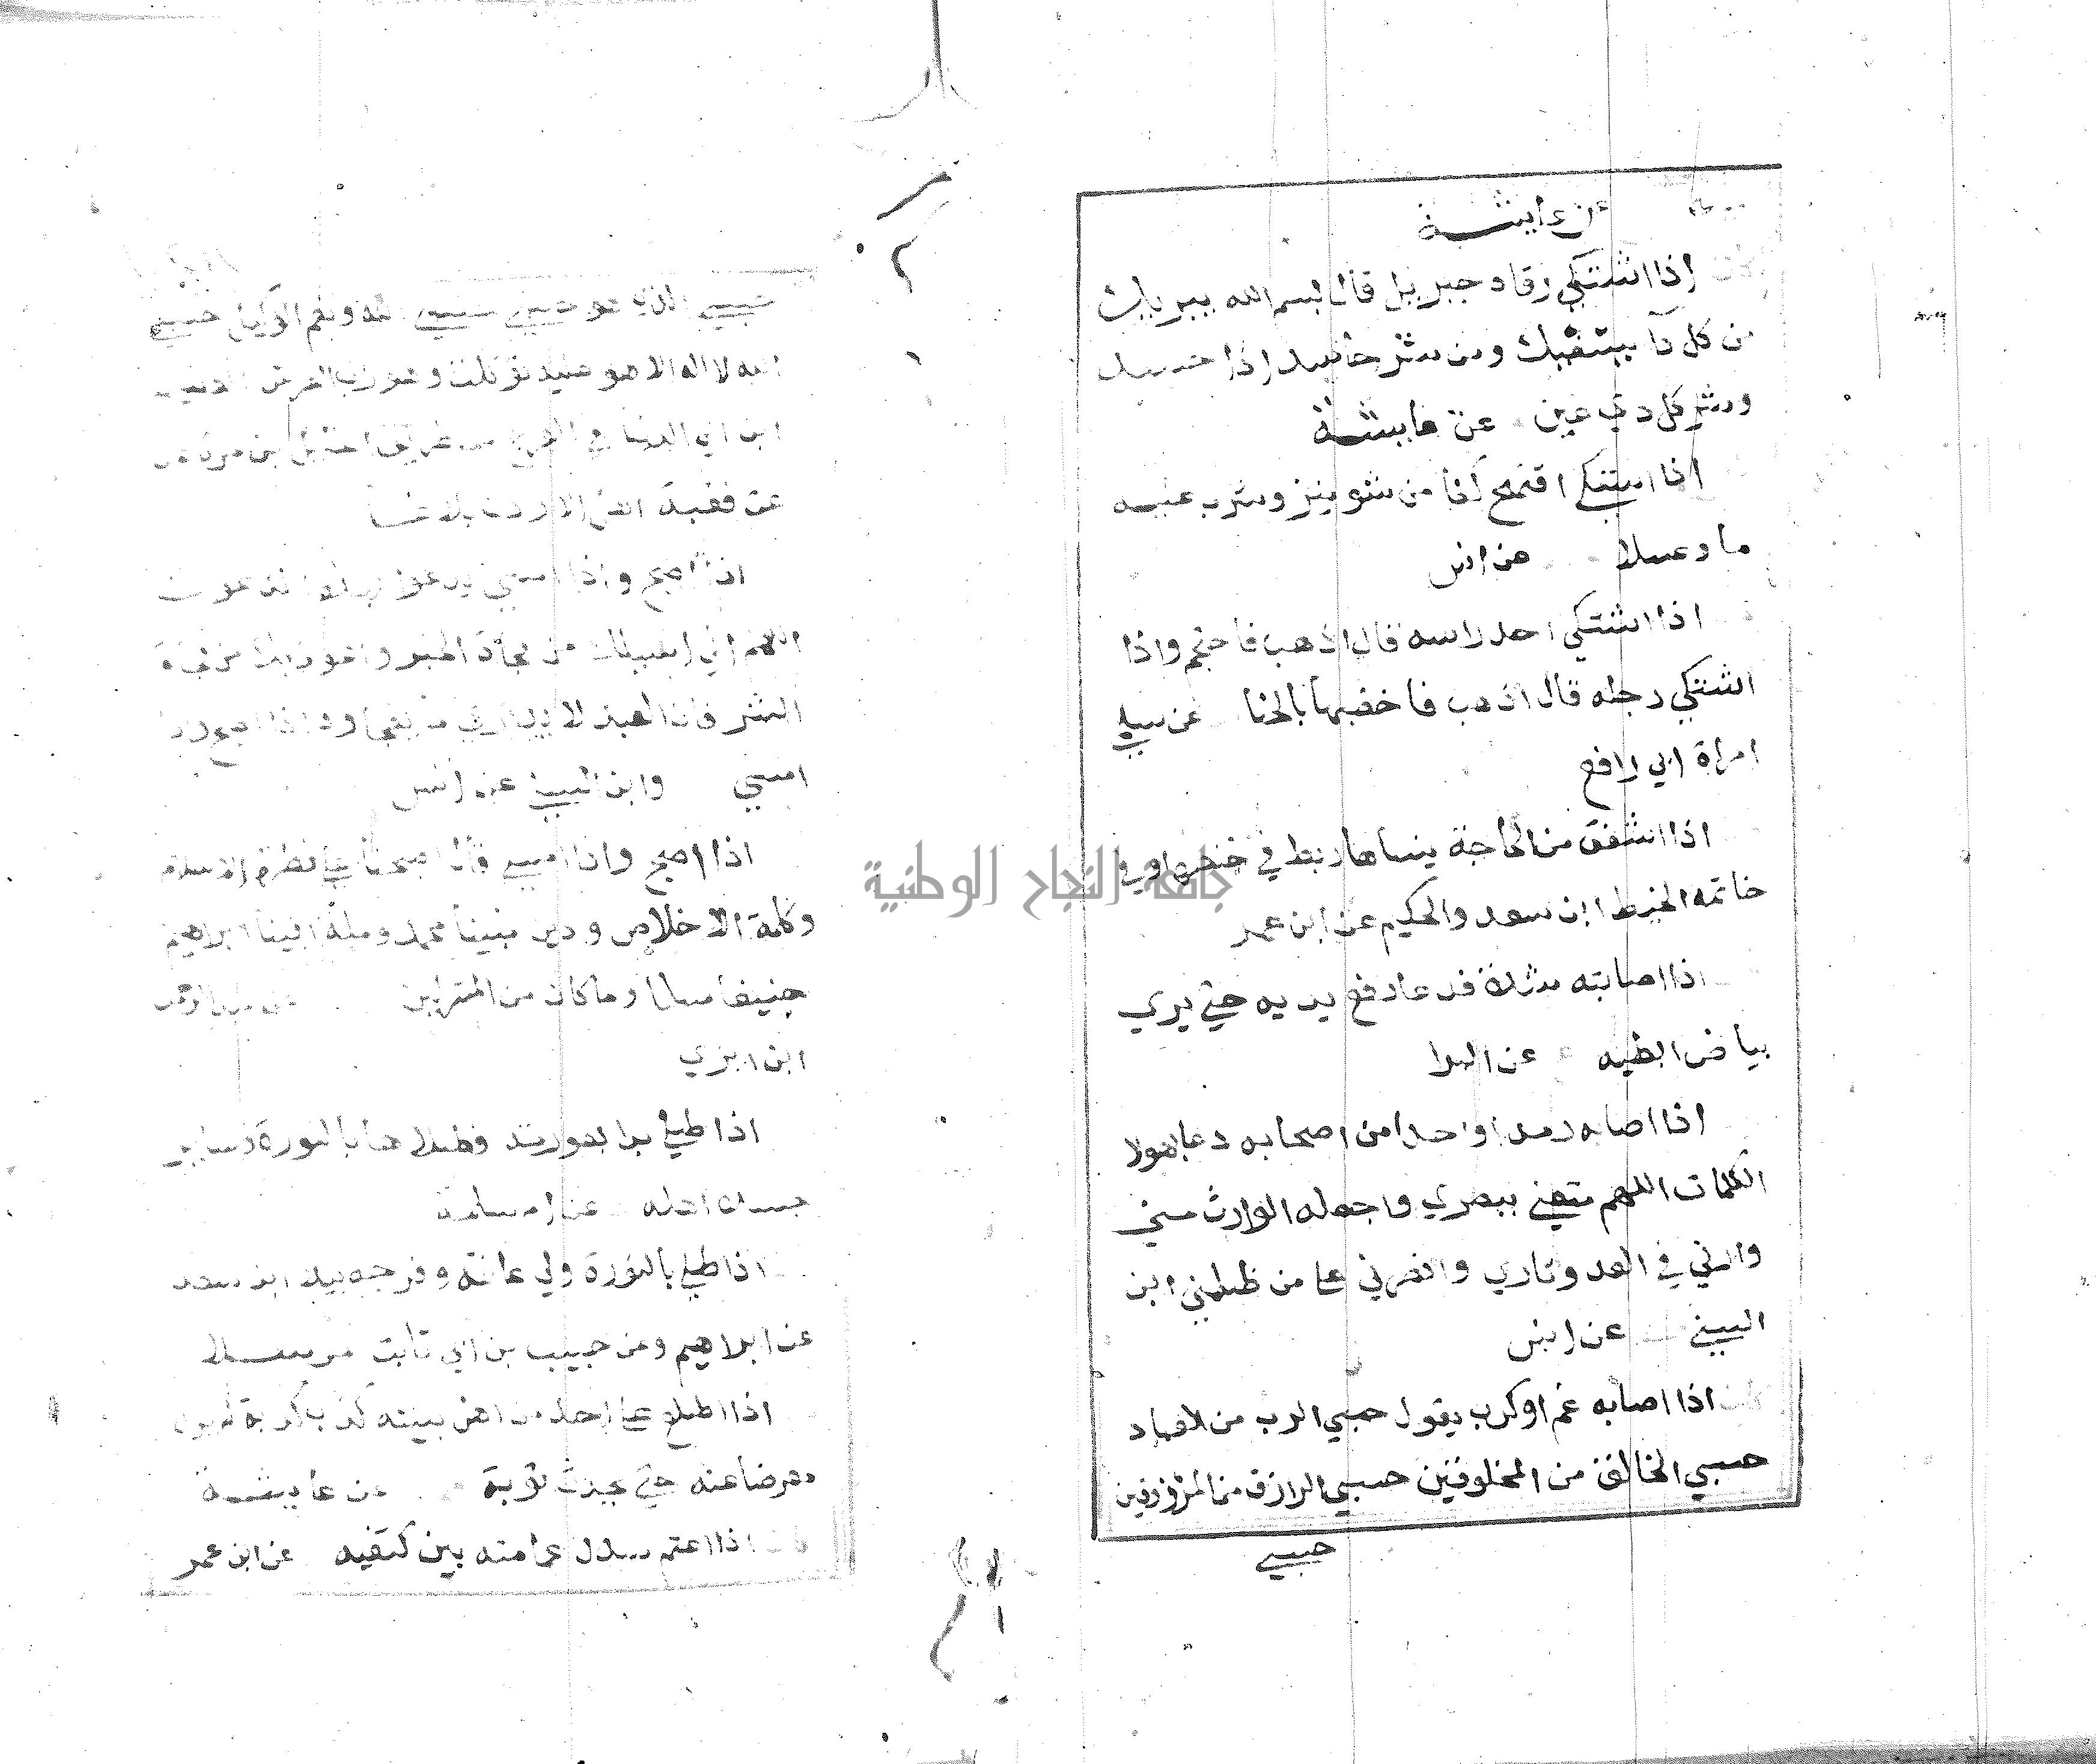 عن عايشة
كان اذا اشتكي رقاه جبريل قال بسم الله يبريك
من كل دآ يشفيك ومن شر حاسد اذا حسد
وشر كل دي عين عن عايشة
اذا اشتكي اقتمح كفا من شونيز وشرب عليه
ما وعسلا عن انس
اذا اشتكي احد راسه قال اذهب فاحتجم واذا
اشتكي رجله قال اذهب فاخضبها بالحنا عن سلمي
امراة ابي رافع
اذا اشفق من الحاجة ينساها ربط في خنصره او في
خاتمه الخيط ابن سعد والحكيم عن ابن عمر
اذا اصابته شدة فدعا رفع يديه حتي يري
بياض ابطيه عن البرا
اذا اصابه رمد او احدا من اصحابه دعا بهولا
الكلمات اللهم متعني ببصري واجعله الوارث مني
وارني في العدو ثاري وانصرني علي من ظلمني ابن
السني عن انس
كان اذا اصابه غم او كرب يقول حسبي الرب من العباد
حسبي الخالق من المخلوقين حسبي الرازق من المرزوقين
حسبي
حسبي الذي هو حسبي حسبي الله ونعم الوكيل حسبي
الله لا اله الا هو عليه توكلت وهو رب العرش العظيم
ابن ابي الدنيا في الفرج من طريق الخليل بن مرة
عن فقيه اهل الاردن بلاغا
اذا اصبح واذا امسي يدعو بهذه الدعوات
اللهم اني اسيلك من فجأة الخير واعوذ بك من فجأة
الشر فان العبد لا يدري ما يفجاوه اذا اصبح واذا
امسي وابن السني عن انس
اذا اصبح واذا امسي قال اصبحنا علي فطرة الاسلام
وكلمة الاخلاص ودين نبينا محمد وملة ابينا ابراهيم
حنيفا مسلما وما كان من المشركين عن عبد الرحمن
ابن ابزي
اذا طلي بدا بعورته فطلاها بالنورة وساير
جسده اهله عن ام سلمة
اذا طلي بالنورة ولي عانته وفرجه بيده ابن سعد
عن ابراهيم وعن حبيب بن ابي ثابت مرسلا
اذا اطلع علي احد من اهل بيته كذب كذبة لم يزل
معرضا عنه حتي يحدث توبة عن عايشة
كان اذا اعتم سدل عمامته بين كتفيه عن ابن عمر
جامعة النجاح الوطنية